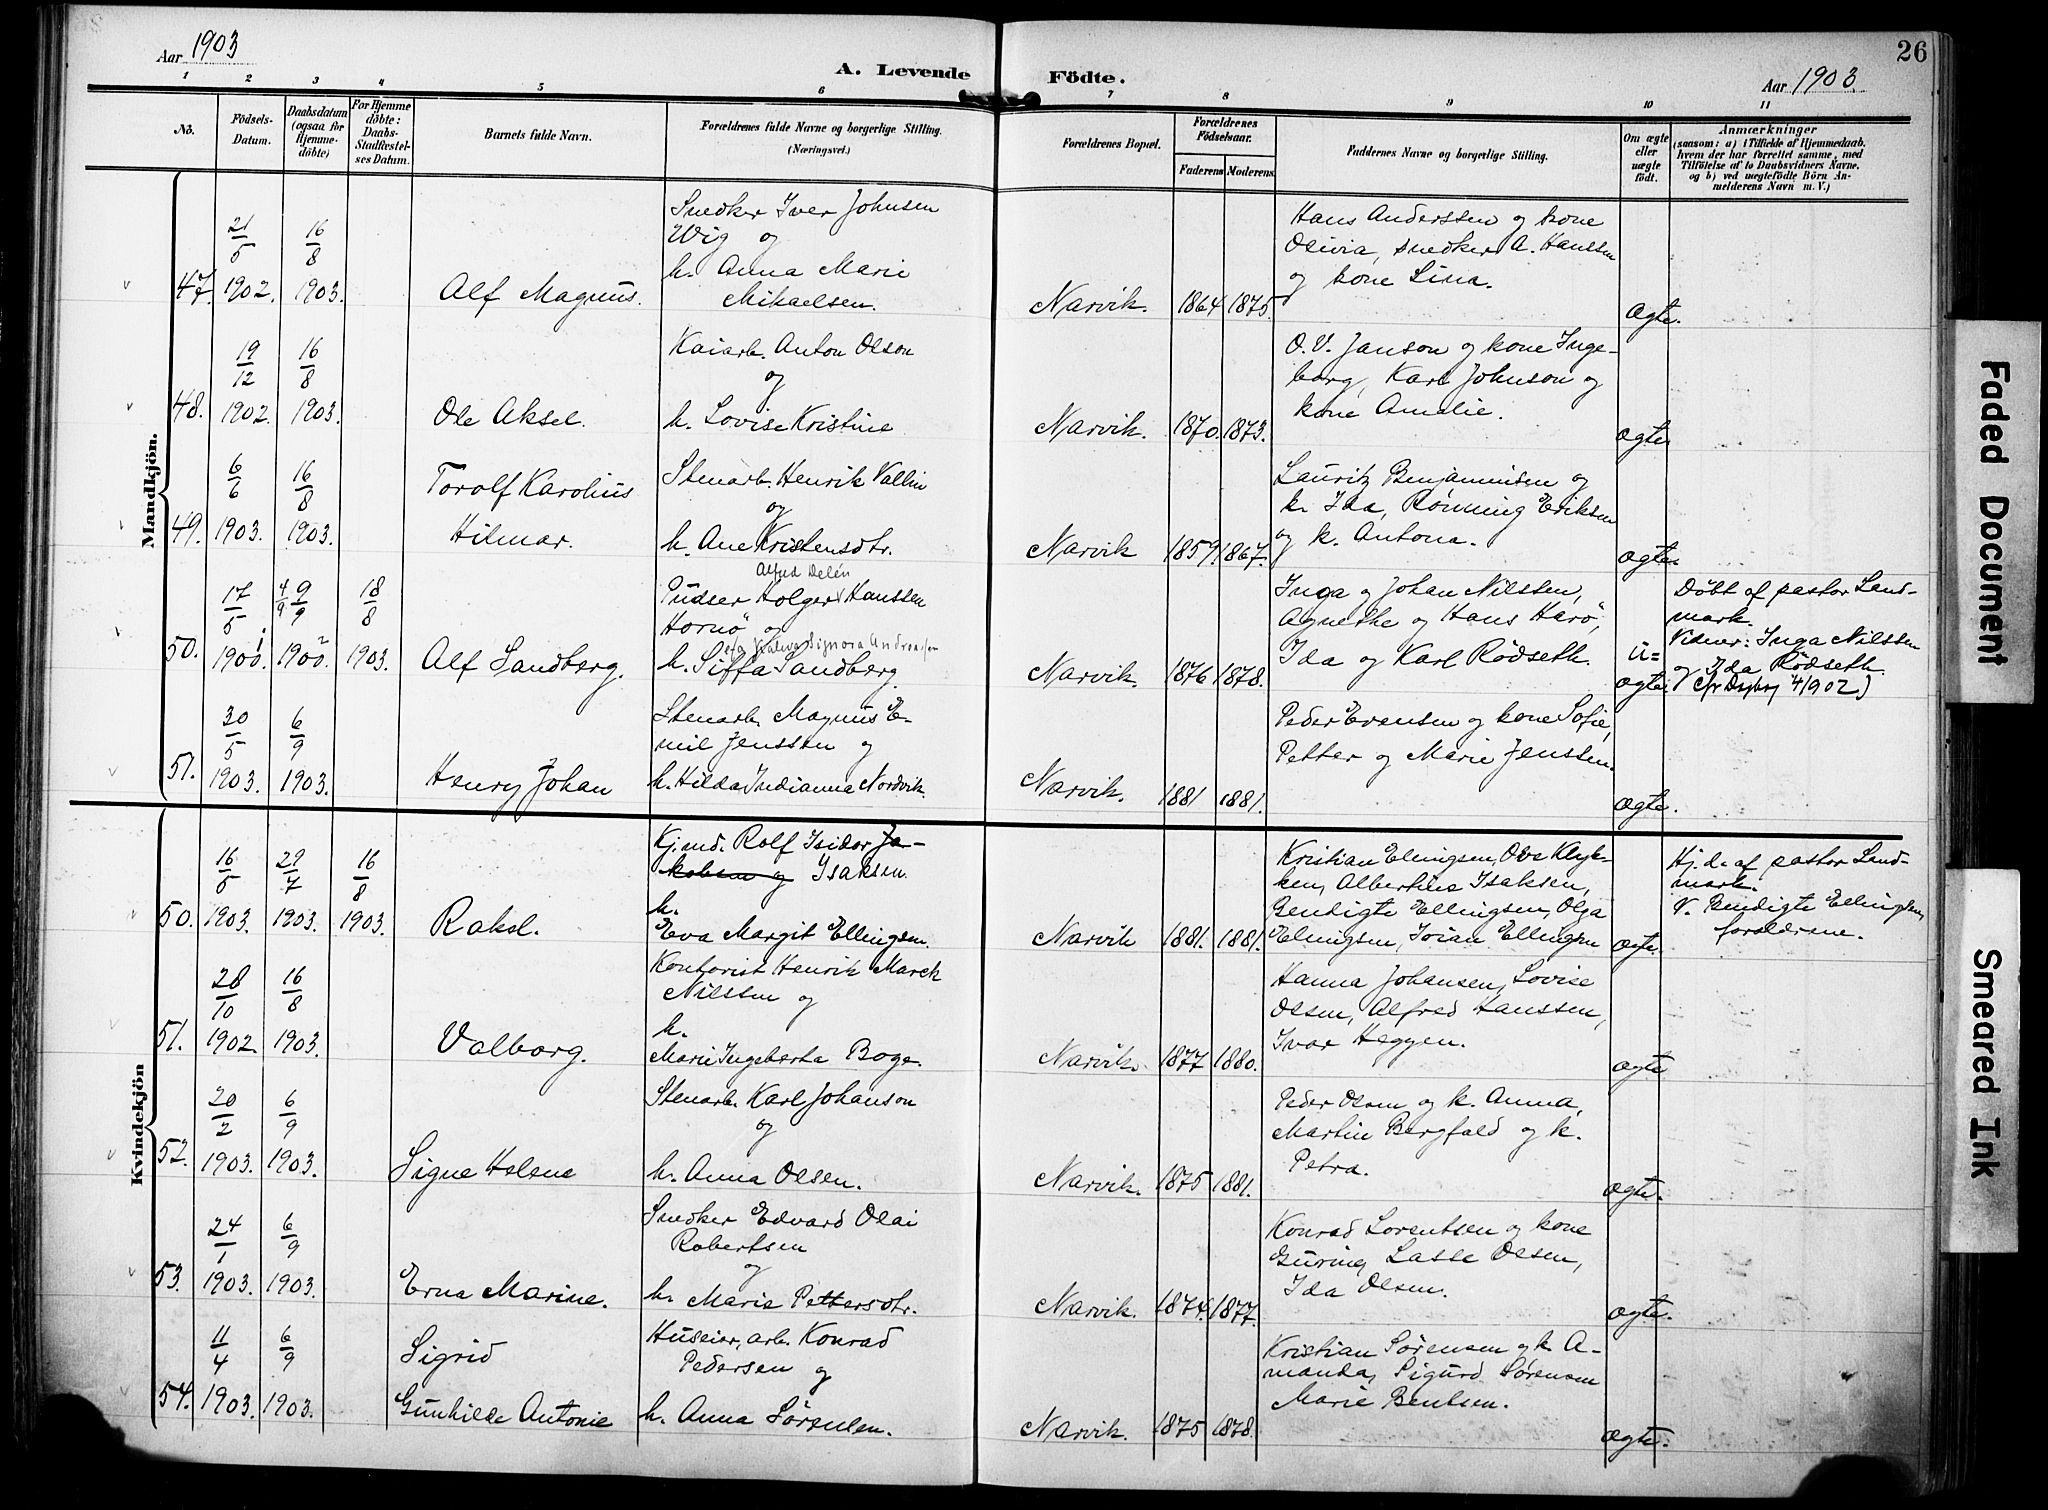 Aar 1903
A. Levende Födte.
Aar 1903.
26
1 2 3 4 5 6 7 8 9 10 11
No.
Födsels-
Datum.
Daabsdatum
(ogsaa for
Hjemme-
döbte)
For Hjemme
döbte:
Daabs-
Stadfæstel-
ses Datum.
Barnets fulde Navn.
Forældrenes fulde Navne og borgerlige Stilling.
(Næringsvei.)
Forældrenes Bopæl.
Forældrenes
Födselsaar.
Faderens Moderens
Faddernes Navne og borgerlige Stilling.
Om ægte
eller
uægte
födt.
Anmærkninger
(saasom: a) i Tilfælde af Hjemmedaab,
hvem der har forrettet samme, med
Tilföielse af to Daabsvidners Navne.
og b) ved uægtefödte Börn An-
melderens Navn m. V.)
Mandkjön.
47. 21/5 1902. 16/8 1903. Alf Magnus.
Snedker Iver Johnsen
Wig og
h. Anna Marie
Mikaelsen.
Narvik. 1864 1875.
Hans Anderssen og kone
Olivia, snedker A. Hanssen
og kone Lina.
ægte.
48. 19/12 1902. 16/8 1903. Ole Aksel.
Kaiarb. Anton Olson
og
h. Lovise Kristine
Narvik. 1870. 1873.
O. V. Janson og kone Inge-
borg, Karl Johnson og
kone Amelie.
ægte
49. 6/6 1903. 16/8 1903.
Torolf Karolius
Hilmar.
Stenarb. Henrik Vallin
og
h. Ane Kristensdtr.
Narvik 1859. 1867.
Lauritz Benjaminsen og
k. Ida, Rønning Eriksen
og k. Antona.
ægte.
50. 17/5 1900. 1 4/9 9/9 1900. 2 18/8 1903. Alf Sandberg.
Alfred Delén
Pudser Holger Hanssen
Hornö og
Signora Andrea
h. Siffa Sandberg.
Narvik. 1876 1878.
Inga og Johan Nilssen,
Agnethe og Hans Harö,
Ida og Karl Rödseth.
u-
ægte
Döbt af pastor Land-
mark.
Vidner: Inga Nilssen
og Ida Rödseth
51. 30/5 1903. 6/9 1903. Henry Johan
Stenarb. Magnus E-
mil Jenssen og
h. Hilda Indianna Nordvik.
Narvik. 1881 1881.
Peder Evensen og kone Sofie,
Petter og Marie Jenssen.
ægte.
Kvindekjön
50. 16/5 1903. 29/7 1903. 16/8 1903. Rakel.
Kjmd. Rolf Isidor Ja-
kobsen og Isaksen.
h.
Eva Margit Ellingsen.
Narvik 1881. 1881.
Kristian Ellingsen, Ove Kleyk-
ken, Albertine Isaksen,
Bendigte Ellingsen, Olga
Ellingsen, Ellingsen
ægte.
Hj.d. af pastor Land-
mark.
V. Bendigte Ellingsen,
forældrene.
51. 28/10 1902. 16/8 1903. Valborg.
Kontorist Henrik Marek
Nilssen og
h.
Marie Ingeborta Boge.
Narvik. 1877 1880.
Hanna Johansen, Lovise
Olsen, Alfred Hanssen,
Ivar Heggen.
ægte
52. 20/2 1903. 6/9 1903. Signe Helene
Stenarb. Karl Johanson
og
h. Anna Olsen.
Narvik. 1875 1881.
Peder Olsen og k. Anna,
Martin Bergfald og k.
Petra.
ægte.
53. 24/1 1903. 6/9 1903. Erna Marine.
Snedker Edvard Olai
Robertsen
og
h. Marie Pettersdtr.
Narvik. 1874. 1877.
Konrad Lorentsen og kone
Guring, Lasse Olsen,
Ida Olsen.
ægte.
54. 11/4 1903. 6/9 1903.
Sigrid
Gunhilde Antonie
Huseier, arb. Konrad
Pedersen og
h. Anna Sörensen.
Narvik. 1875 1878.
Kristian Sørensen og k. A-
manda, Sigurd Sørensen
Marie Bentsen.
ægte.
Faded Document
Smeared Ink